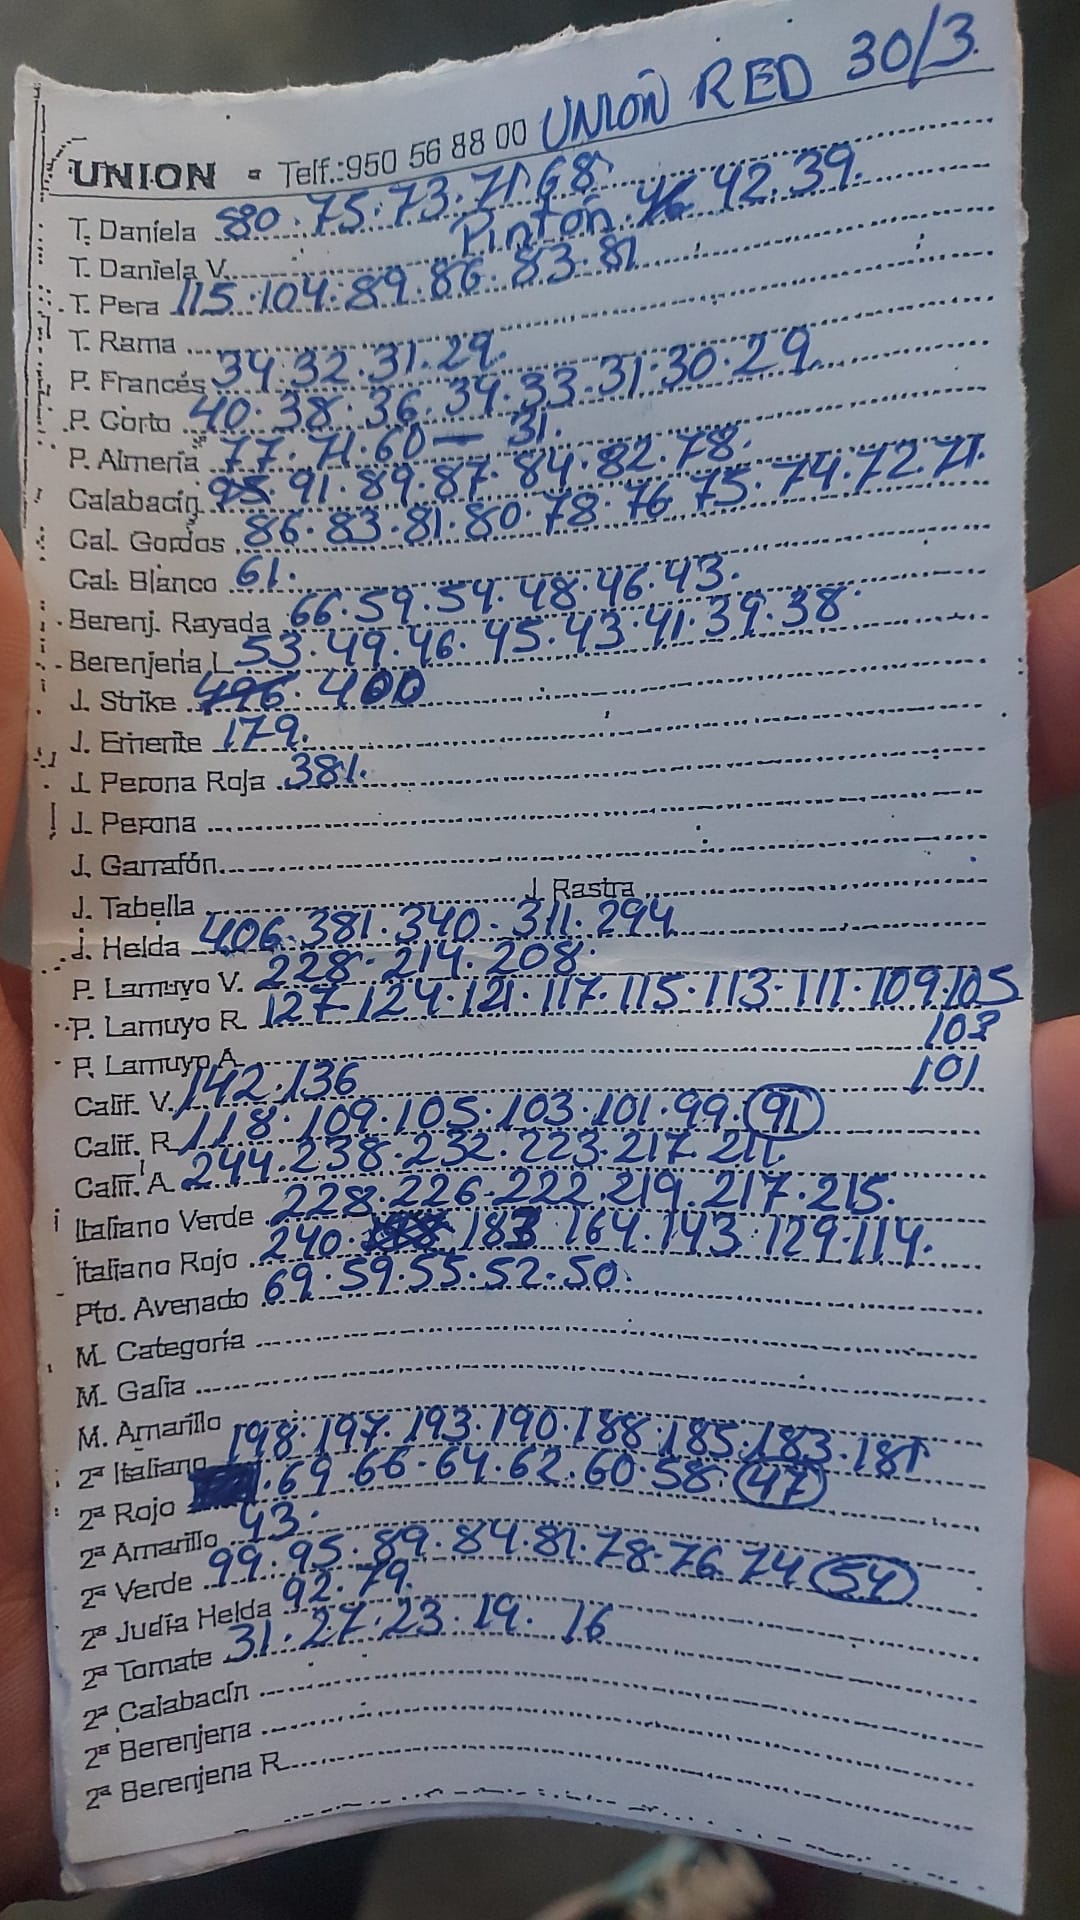 UNION RED 30/3
UNION - Telf.:950 56 88 00
T. Daniela 80.75.73.71.68
Pintón 42.39.
T. Daniela V.
T. Pera 115.104.89.86.83.81
T. Rama
P. Francés 34.32.31.29.
P. Corto 40.38.36.34.33.31.30.29
P. Almeria 77.71.60 — 31.
Calabacin 95.91.89.87.84.82.78.
Cal. Gordos 86.83.81.80.78.76 75.74.72.71.
Cal. Blanco 61.
Berenj. Rayada 66.59.54.48.46.43.
Berenjena L 53.49.46.45.43.41.39.38.
J. Strike 496.400
J. Emerite 179.
J. Perona Roja 381.
J. Perona
J. Garrafón
J. Tabella J. Rastra
J. Helda 406.381.340.311.294
P. Lamuyo V. 228.214.208.
P. Lamuyo R. 127.124.121.117.115.113.111.109.105
103
P. Lamuyo A. 101
Calif. V. 142.136
Calif. R. 118.109.105.103.101.99.91
Calif. A. 244.238.232.223.217.211.
Italiano Verde 228.226.222.219.217.215.
Italiano Rojo 240. 183 164.143.129.114.
Pto. Avenado 69.59.55.52.50.
M. Categoría
M. Galia
M. Amarillo
2ª Italiano 198.197.193.190.188.185.183.181
2ª Rojo .69.66.64.62.60.58.47
2ª Amarillo 43.
2ª Verde 99.95.89.84.81.78.76.74 54
2ª Judía Helda 92.79.
2ª Tomate 31.27.23.19.16
2ª Calabacín
2ª Berenjena
2ª Berenjena R.